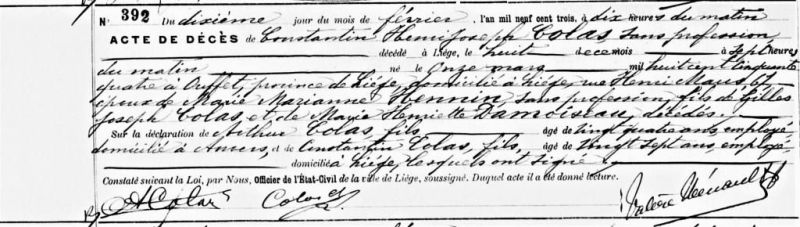 N. 392 Du dixième jour du mois de février l'an mil neuf cent trois, à dix heures du matin
ACTE DE DÉCÈS de Constantin Henri Joseph Colas, sans profession,
décédé à Liége, le huit de ce mois à sept heures
du matin né le onze mars mil huit cent cinquante
quatre à Ouffet, province de Liége, domicilié à Liége, rue Henri Maus, 67,
époux de Marie Marianne Hennin, sans profession, fils de Gilles
Joseph Colas, et de Marie Henriette Damoiseau, décédés.
Sur la déclaration de Arthur Colas, fils, âgé de vingt quatre ans, employé,
domicilié à Anvers, et de Constantin Colas, fils, âgé de vingt sept ans, employé,
domicilié à Liége, lesquels ont signé.
Constaté suivant la Loi, par Nous, Officier de l'État-Civil de la ville de Liége, soussigné. Duquel acte il a été donné lecture.
A Colas Colas Valère Hénault